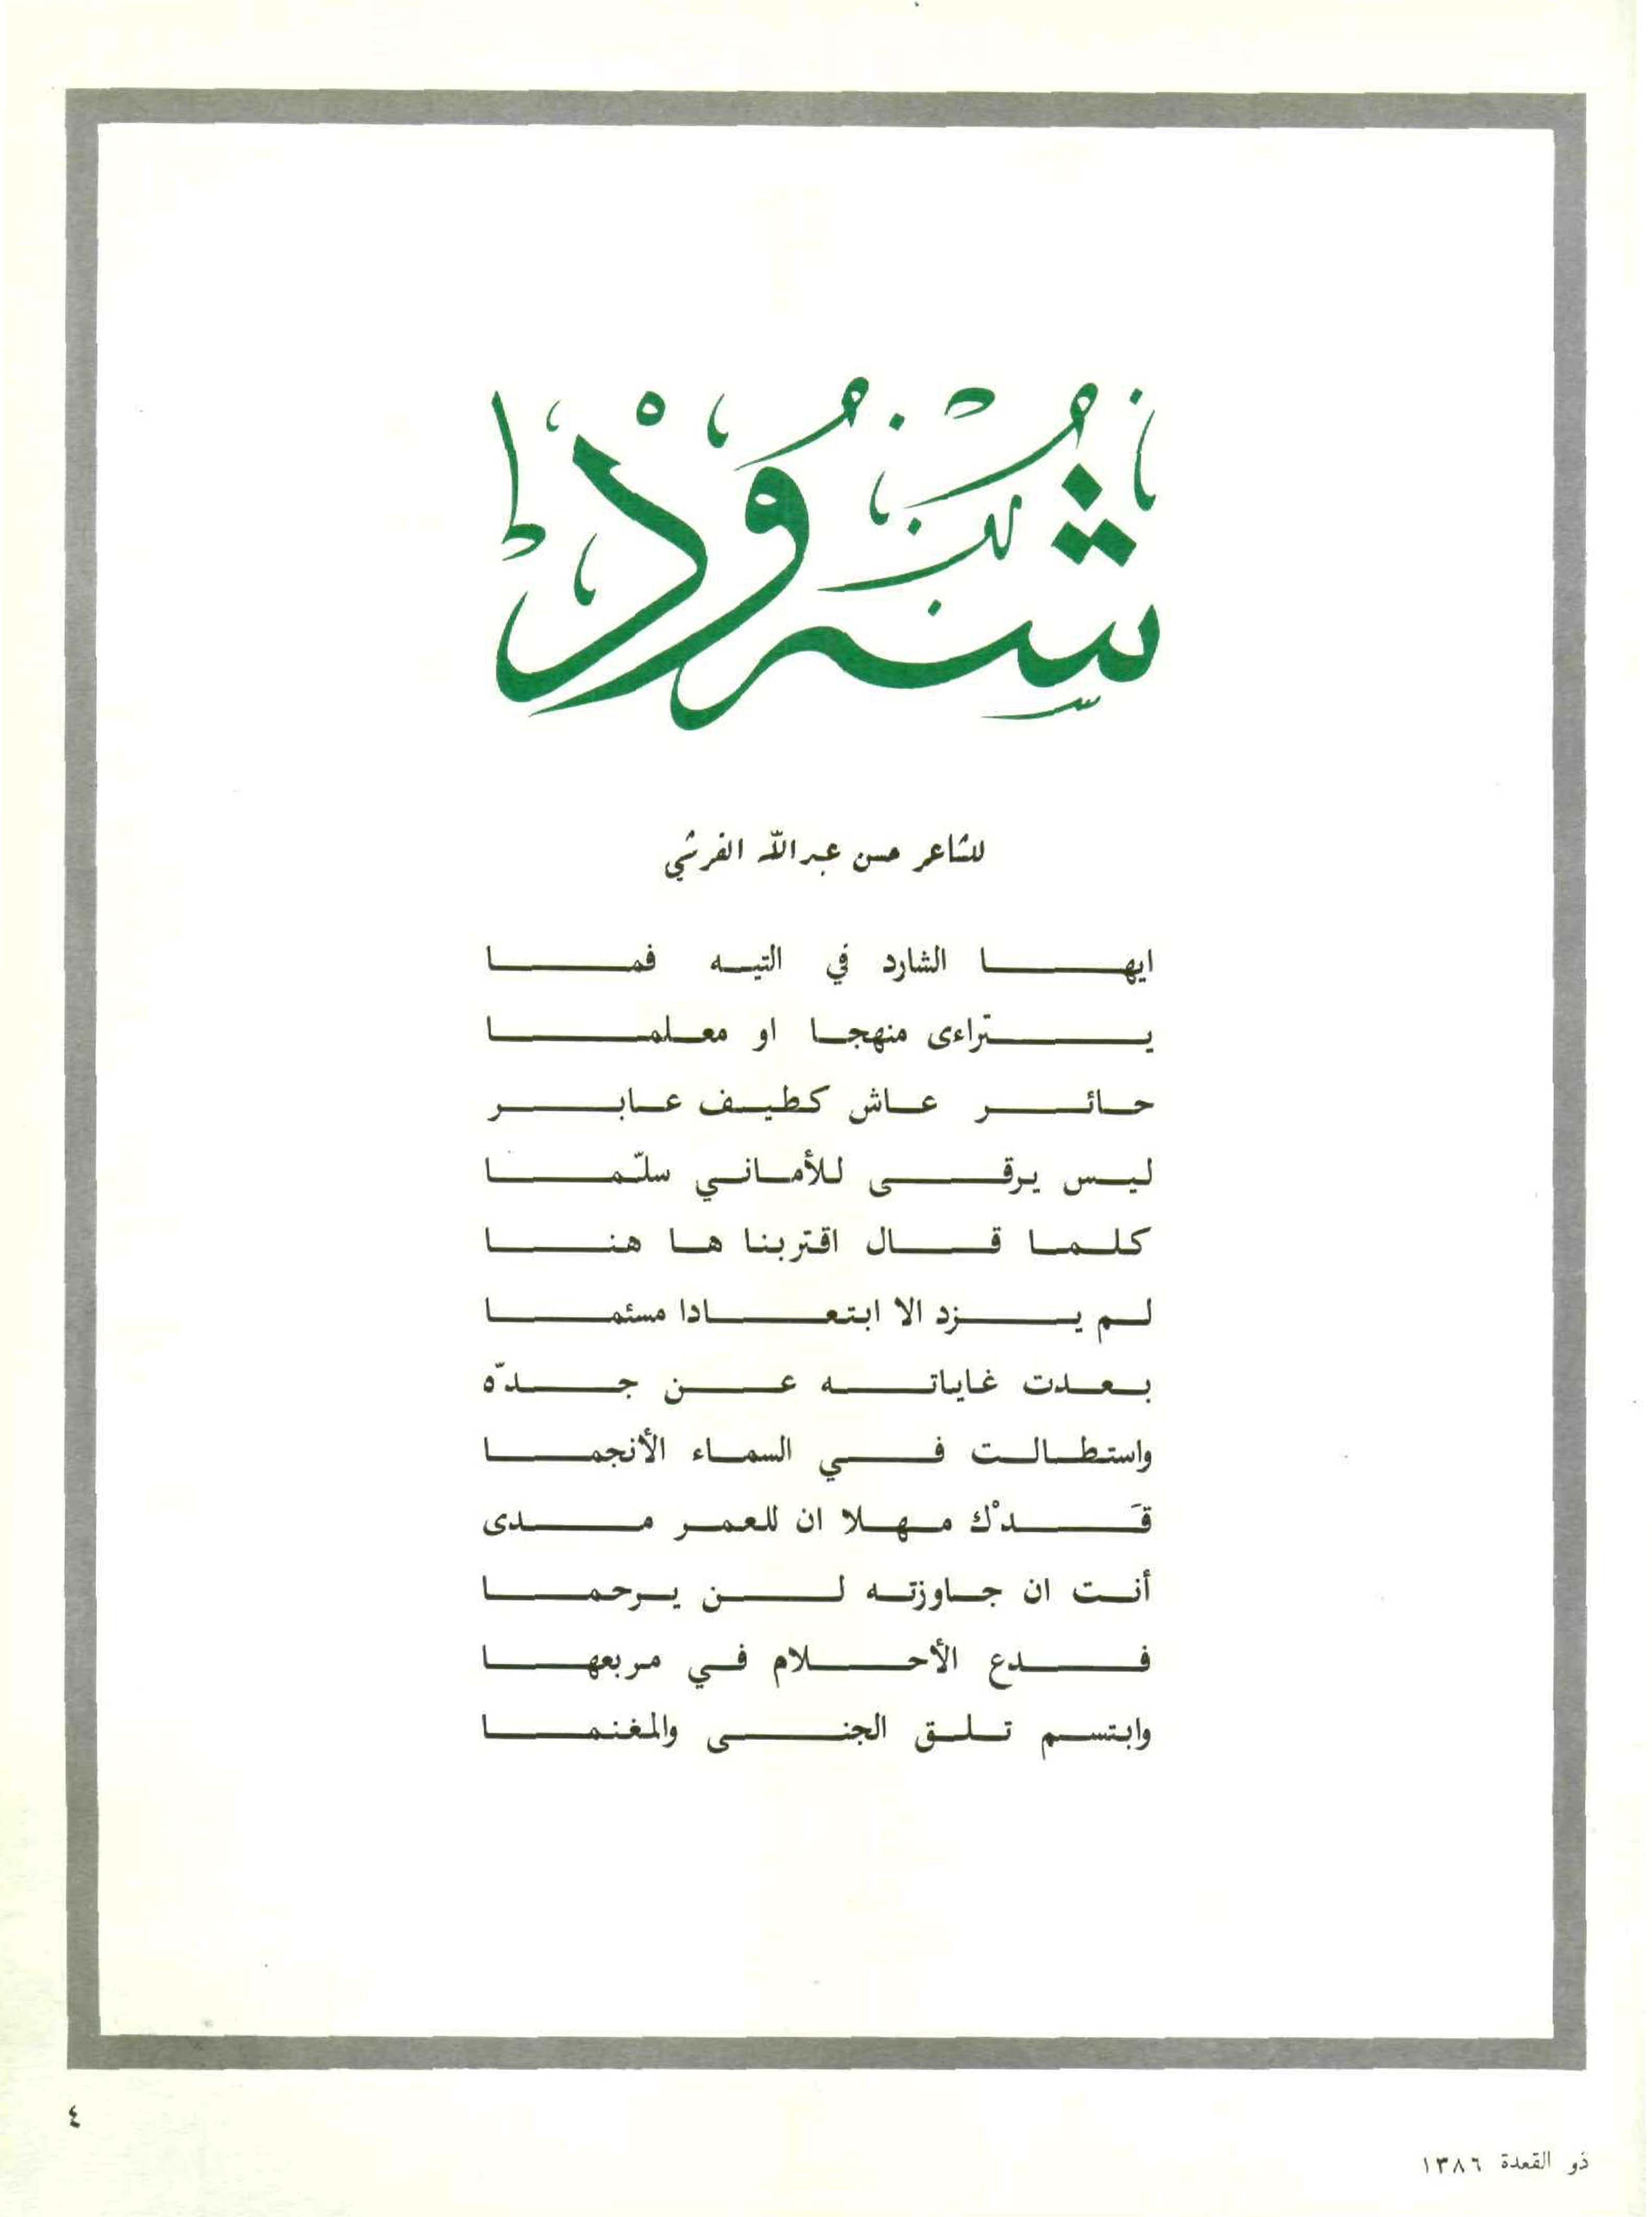 شُرُودْ
للشاعر حسن عبد الله القرشي
ايها الشارد في التيه فما
يتراءى منهجا او معلما
حائر عاش كطيف عابر
ليس يرقى للأماني سلّما
كلما قال اقتربنا ها هنا
لم يزد الا ابتعادا مسئما
بعدت غاياته عن جدّه
واستطالت في السماء الأنجما
قَدْك مهلا ان للعمر مدى
أنت ان جاوزته لن يرحما
فدع الأحلام في مربعها
وابتسم تلق الجنى والمغنما
٤
ذو القعدة ١٣٨٦